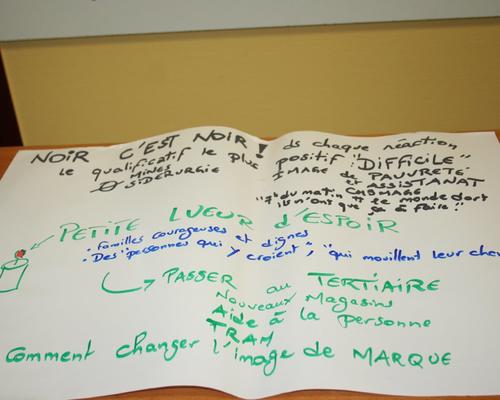 NOIR C'EST NOIR ! ds chaque réaction
le qualificatif le plus positif : "DIFFICILE"
MINES
SIDÉRURGIE
IMAGE de PAUVRETÉ
et ASSISTANAT
CHÔMAGE
"7h du matin tt le monde dort
ils n'ont que ça à faire"
PETITE LUEUR d'ESPOIR
• Familles courageuses et dignes
• Des "personnes qui y croient", "qui mouillent leur che
PASSER au TERTIAIRE
Nouveaux Magasins
Aide à la Personne
TRAM
Comment changer l'image de MARQUE